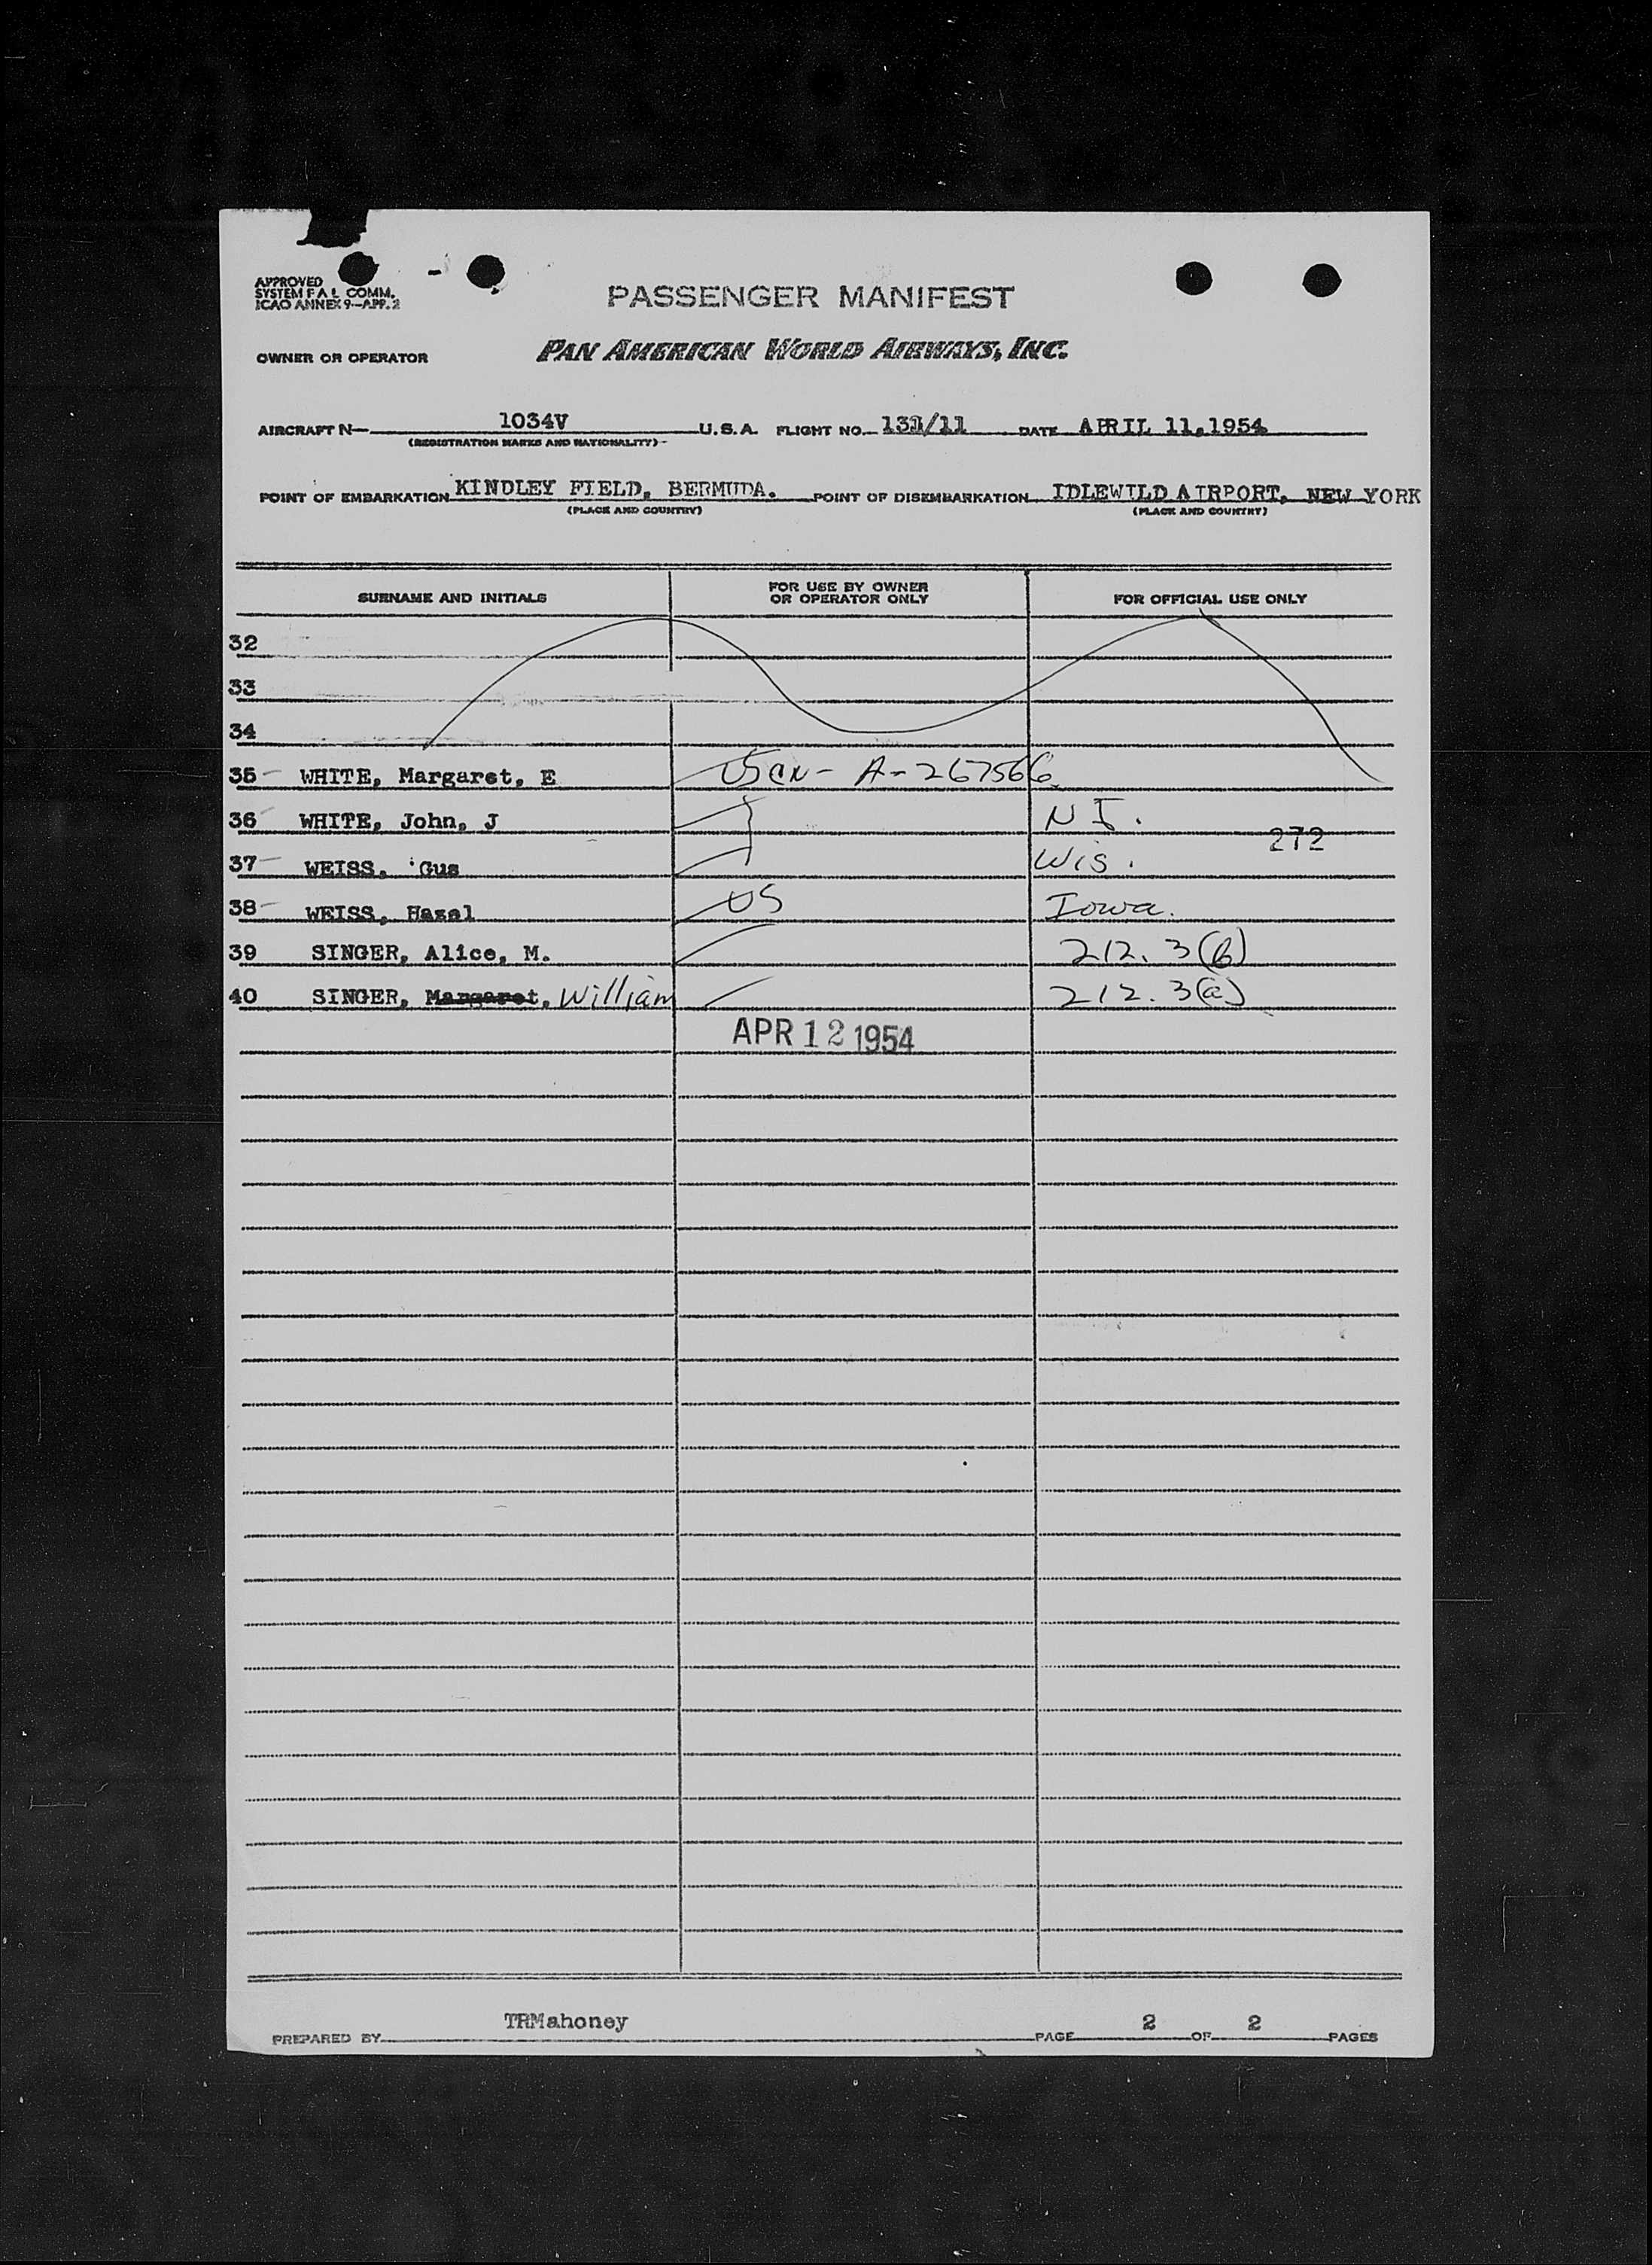 APPROVED
SYSTEM F A L COMM.
ICAO ANNEX 9-APP. 2
PASSENGER MANIFEST
OWNER OR OPERATOR PAN AMERICAN WORLD AIRWAYS, INC.
AIRCRAFT N- 1034V U.S.A. FLIGHT NO. 131/11 DATE APRIL 11,1954
(REGISTRATION MARKS AND NATIONALITY)
POINT OF EMBARKATION KINDLEY FIELD, BERMUDA. POINT OF DISEMBARKATION IDLEWILD AIRPORT, NEW YORK
(PLACE AND COUNTRY) (PLACE AND COUNTRY)
SURNAME AND INITIALS FOR USE BY OWNER OR OPERATOR ONLY FOR OFFICIAL USE ONLY
32
33
34
35 WHITE, Margaret, E A-267566
36 WHITE, John, J
272
37 WEISS, Gus Wis.
38 WEISS, Hazel US Iowa.
39 SINGER, Alice, M. 212.3(b)
40 SINGER, Margaret, William 212.3(a)
APR 12 1954
PREPARED BY TRMahoney PAGE 2 OF 2 PAGES